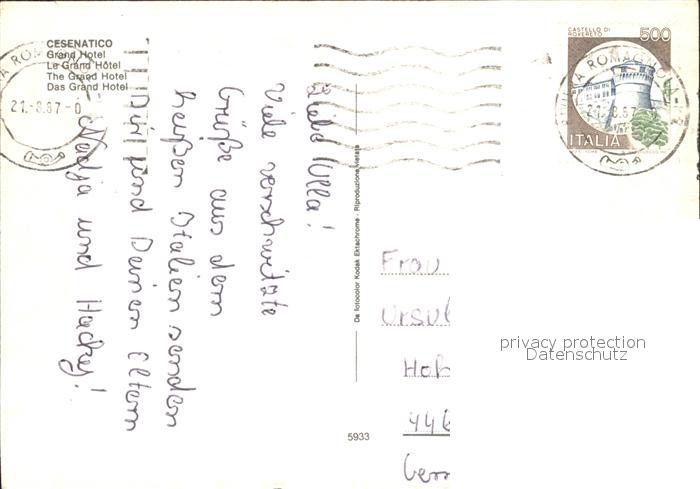 CESENATICO
Grand Hotel
Le Grand Hôtel
The Grand Hotel
Das Grand Hotel
21.-8.87-0
Liebe Ulla!
Viele verschwitzte
Grüße aus dem
heißen Italien senden
Dir und Deinen Eltern
Nadja und Hackej!
De fotocolor Kodak Ektachrome - Riproduzione vietata
5933
CASTELLO DI
ROVERETO
500
ROMAGNOLA
ITALIA
Frau
Ursul
446
privacy protection
Datenschutz